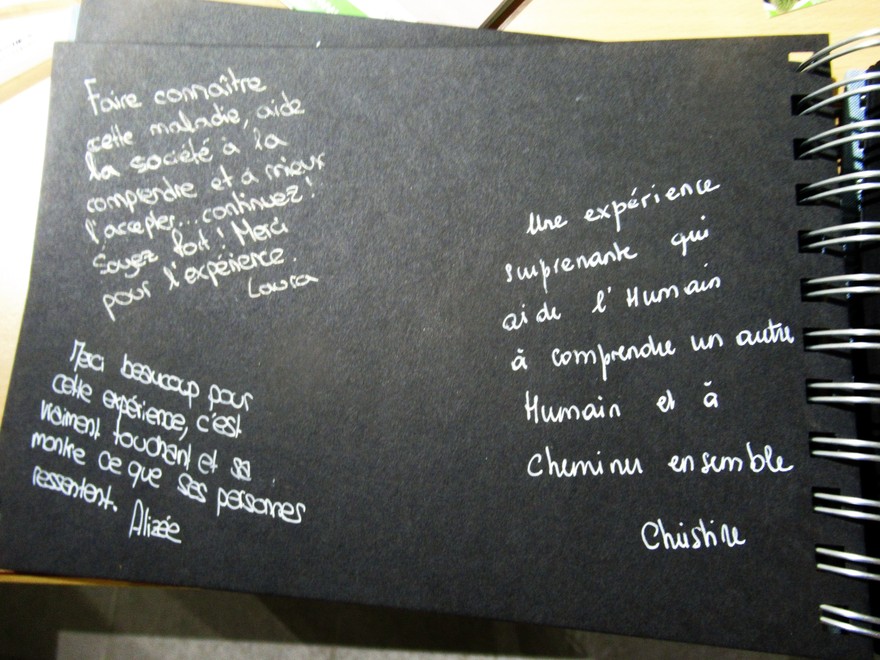 Faire connaître
cette maladie, aide
la société à la
comprendre et à mieux
l'accepter... continuez !
Soyez fort ! Merci
pour l'expérience.
Laura
Merci beaucoup pour
cette expérience, c'est
vraiment touchant et sa
montre ce que ses personnes
ressentent.
Alizée
Une expérience
surprenante qui
aide l'Humain
à comprendre un autre
Humain et à
Cheminer ensemble
Christine